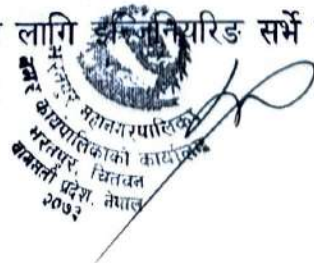 लागि इन्जिनियरिङ सर्भे
भरतपुर महानगरपालिका
नगर कार्यपालिकाको कार्यालय
भरतपुर, चितवन
बागमती प्रदेश, नेपाल
२०७३